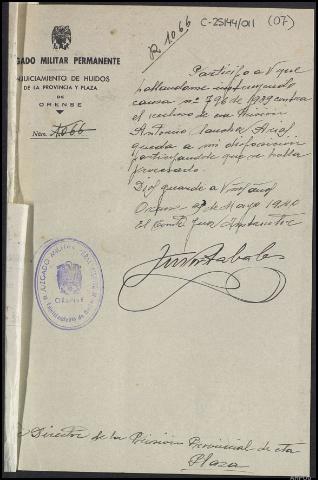 R 1066
C-25144/011
(07)
GADO MILITAR PERMANENTE
NJUICIAMIENTO DE HUIDOS
DE LA PROVINCIA Y PLAZA
DE
ORENSE
Núm. 1066
Participo a V. que
hallandome instruyendo
causa nº 796 de 1939 contra
el recluso de esa Prisión
Antonio
queda a mi disposición
participandole que se halla
procesado.
Dios guarde a V. muchos años
Orense de Mayo 1940
El Comte Juez Instructor
JUZGADO MILITAR PERMANENTE
ORENSE
Director de la Prision Provincial de esta
Plaza